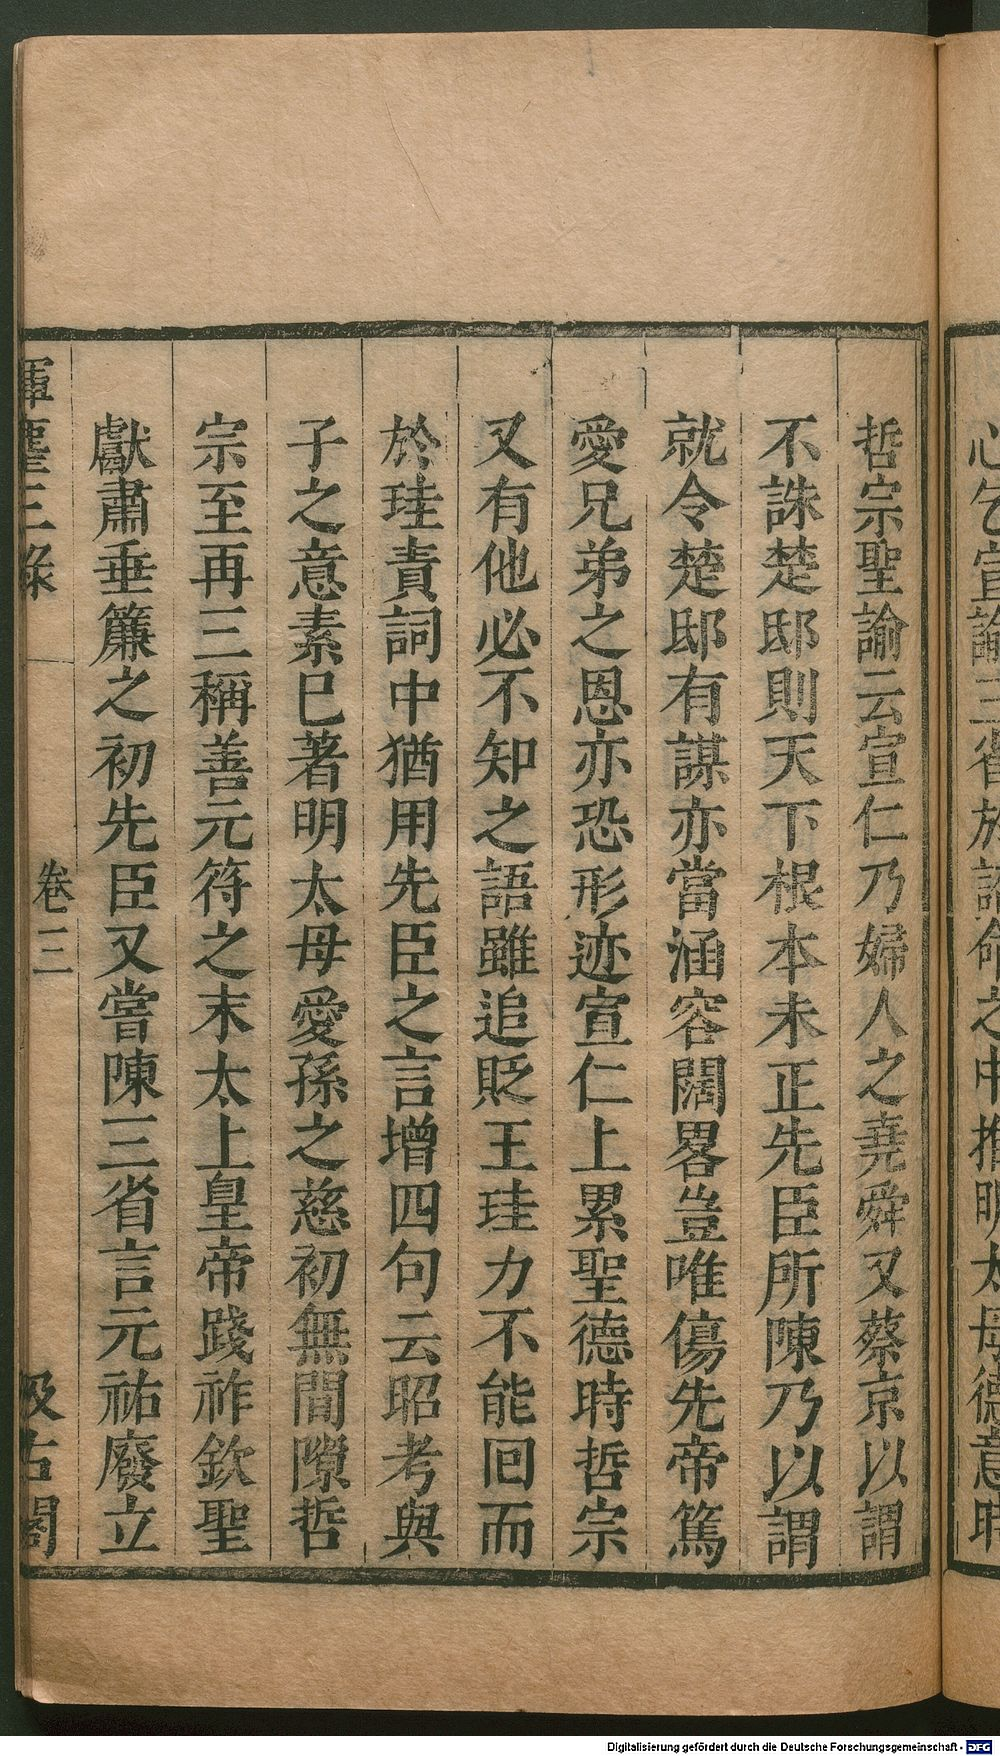 哲宗聖諭云宣仁乃婦人之堯舜又蔡京以謂
不誅楚邸則天下根本未正先臣所陳乃以謂
就令楚邸有謀亦當涵容闊畧豈唯傷先帝篤
愛兄弟之恩亦恐形迹宣仁上累聖德時哲宗
又有他必不知之語雖追貶王珪力不能回而
於珪責詞中猶用先臣之言增四句云昭考與
子之意素巳著明太母愛孫之慈初無間隙哲
宗至再三稱善元符之末太上皇帝踐祚欽聖
獻肅垂簾之初先臣又嘗陳三省言元祐廢立
揮塵三錄
卷三
汲古閣
Digitalisierung gefördert durch die Deutsche Forschungsgemeinschaft - DFG